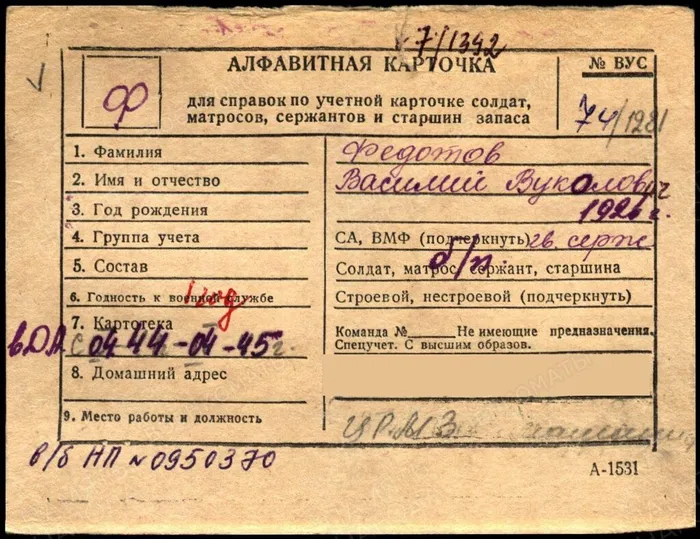 7/1342
АЛФАВИТНАЯ КАРТОЧКА
№ ВУС
Ф
для справок по учетной карточке солдат,
матросов, сержантов и старшин запаса
74/1281
1. Фамилия Федотов
2. Имя и отчество Василий Вуколович
3. Год рождения 1926 г.
4. Группа учета СА, ВМФ (подчеркнуть) гв. серж
5. Состав Солдат, матрос, сержант, старшина
б/п.
6. Годность к военной службе Строевой, нестроевой (подчеркнуть)
7. Картотека Команда № Не имеющие предназначения.
Спецучет. С высшим образов.
в.ДА с 04 44 - 04 - 45 г.
8. Домашний адрес
9. Место работы и должность ЦРМЗ
в/б НП №0950370
А-1531